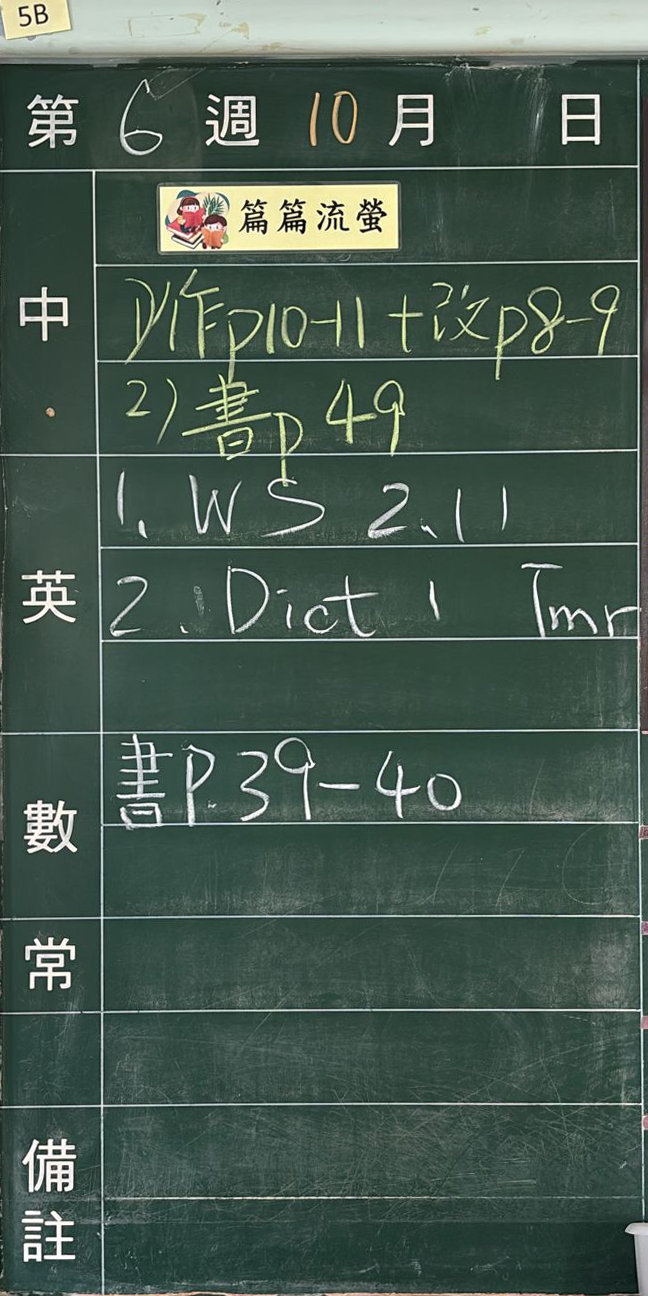 5B
第 6 週 10 月 日
中
篇篇流螢
1)作p10-11+改p8-9
2)書p49
英
1. WS 2.11
2. Dict 1 Tmr
數
書P.39-40
常
備註